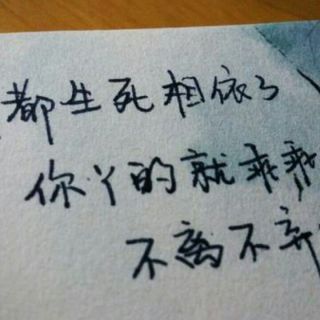 都生死相依了
你丫的就乖乖
不离不弃